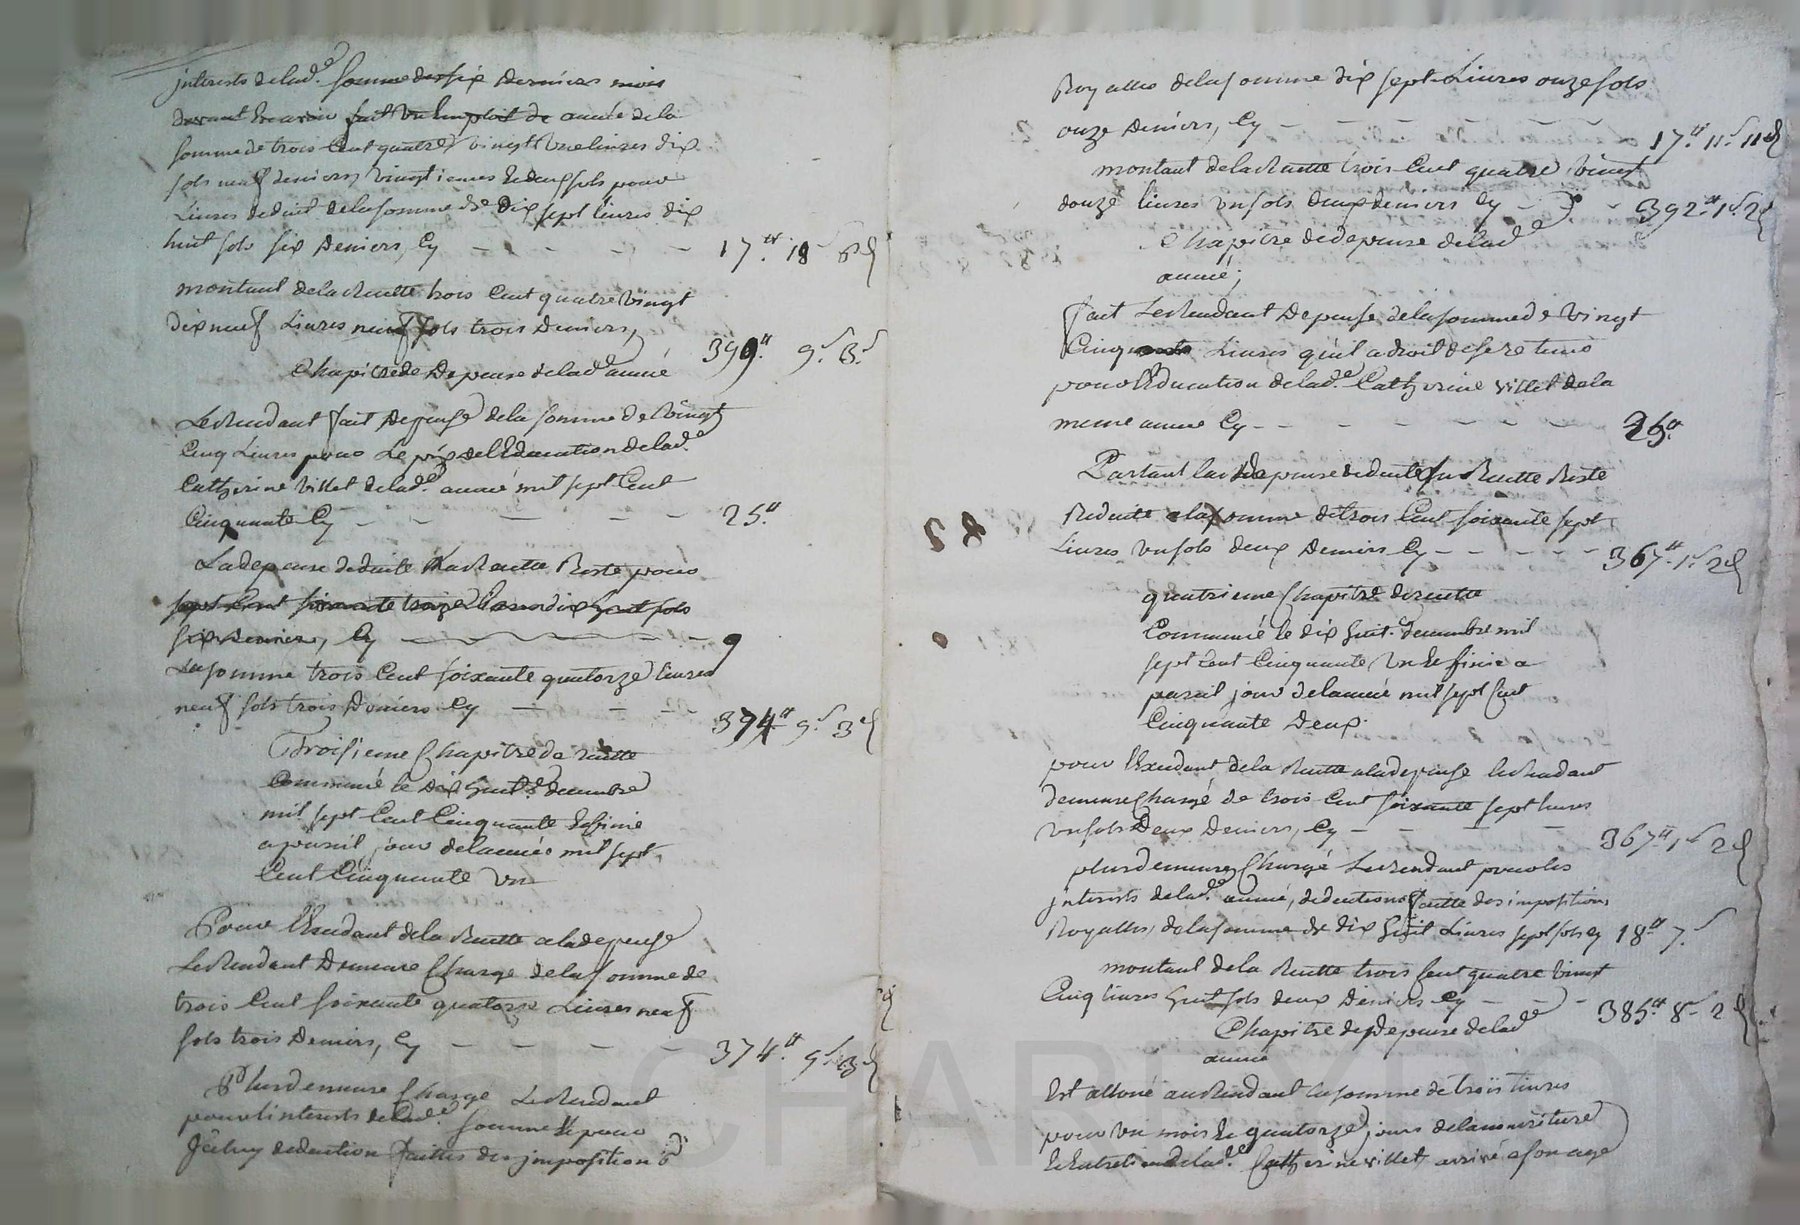 interests de lad.e somme des six derniers mois
devant encavoir fait un emploit de année de la
somme de trois Cent quatre vingt une livres dix
sols neuf deniers, vingtiemes & deux sols pour
Livres deduit de la somme de dix sept livres dix
huit sols six Deniers, Cy - - - - - 17.ʰ 18ˢ 6ᵈ
montant de la Recette trois Cent quatre vingt
dix neuf Livres neuf sols trois Deniers, 399.ʰ 9.ˢ 3.ᵈ
Chapitre de Depense de lad.e année
Le Rendant fait Depense de la somme de vingt
Cinq Livres pour Le prix de l'Education de lad.e
Catherine Villet de lad.e année mil sept Cent
Cinquante Cy - - - - - 25.ʰ
La depense deduite Sur la Recette Reste pour
sept Cent soixante treize livres dix huit sols
six deniers, Cy - - - 9
La somme trois Cent soixante quatorze livres
neuf sols trois Deniers Cy - - - - 374ʰ 9.ˢ 3ᵈ
Troisieme Chapitre de recette
Commencé le dix huit.e decembre
mil sept Cent Cinquante & finie
a pareil jour de l'année mil sept
Cent Cinquante Un
Pour l'Excedant de la Recette a la depense
Le Rendant Demeure Chargé de la somme de
trois Cent soixante quatorze Livres neuf
sols trois Deniers, Cy - - - - - 374.ʰ 9ˢ 3ᵈ
Plus demeure Chargé Le Rendant
pour l'interests de lad.e somme & pour
Jceluy deduction faittes des jmpositions
Royalles de la somme dix sept Livres onze sols
onze Deniers, Cy - - - - - - 17.ʰ 11.ˢ 11ᵈ
montant de la Recette trois Cent quatre vingt
douze livres un sols deux deniers Cy - - 392.ʰ 1.ˢ 2ᵈ
Chapitre de depense de lad.e
année;
fait Le Rendant Depense de la somme de vingt
Cinq Livres qu'il a droit de se retenir
pour l'Education de lad.e Catherine Villet de la
meme année Cy - - - - - - 25ʰ
Partant la Depense deduite sur Recette Reste
Reduite a la somme de trois Cent soixante sept
Livres un sols deux Deniers Cy - - - - - 367.ʰ 1.ˢ 2ᵈ
quatrieme Chapitre de recette
Commencé le dix huit. decembre mil
sept cent Cinquante Un & finie a
pareil jour de l'année mil sept Cent
Cinquante Deux.
pour l'Excedant de la Recette a la depense le Rendant
demeure Chargé de trois Cent soixante sept livres
un sols Deux Deniers, Cy - - - - 367ʰ 1ˢ 2ᵈ
plus demeure Chargé Le Rendant pour les
jnterests de lad.e année, deductions faitte des impositions
Royalles, de la somme de dix huit Livres sept sols cy 18ʰ 7.ˢ
montant de la Recette trois Cent quatre vingt
Cinq livres huit sols deux Deniers Cy - - - 385.ʰ 8ˢ 2ᵈ
Chapitre de Depense de lad.e
année
Est alloué au Rendant la somme de trois livres
pour un mois & quatorze jours de la nouriture
& Entretien de lad.e Catherine Villet, arrivé a son age